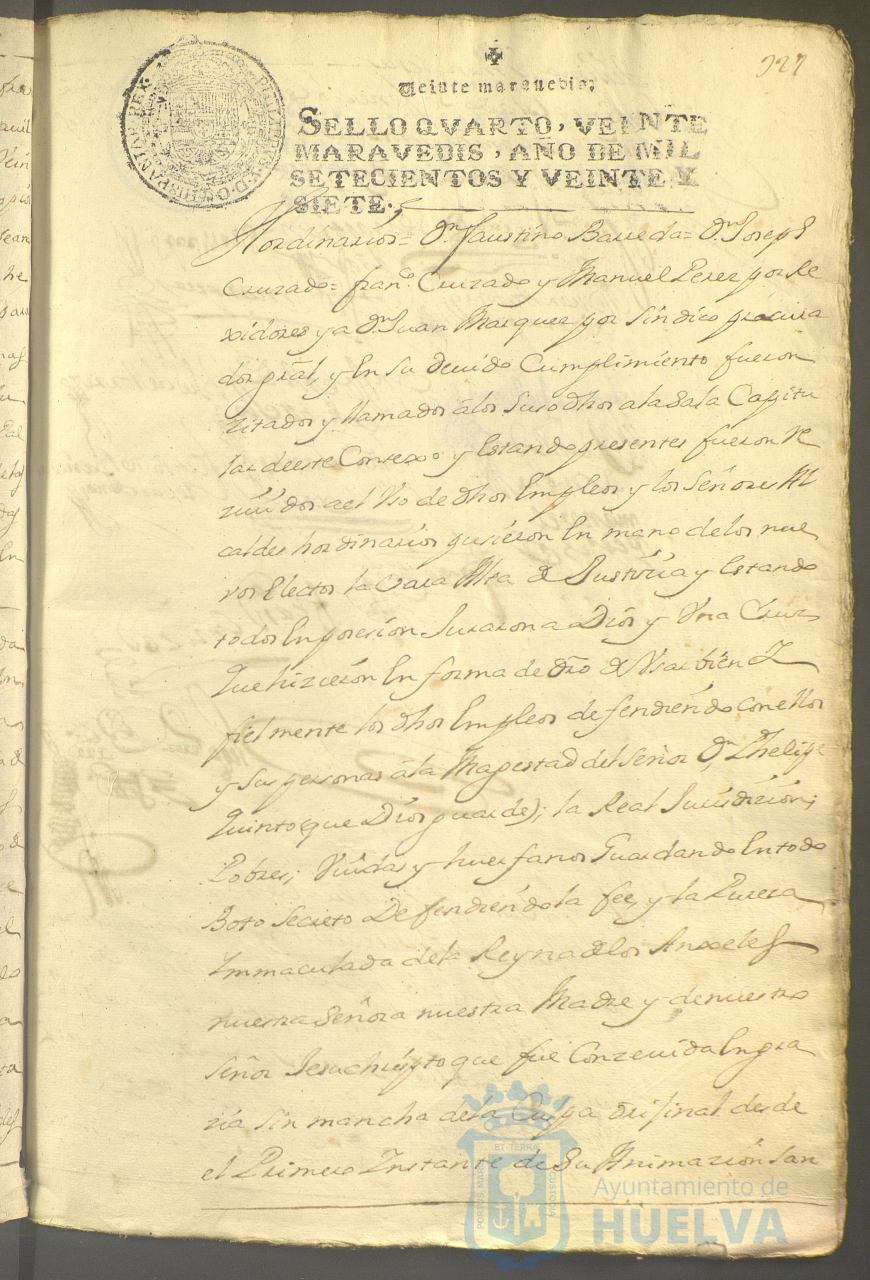 327
Veinte maravedis;
SELLO QVARTO, VEINTE
MARAVEDIS, AÑO DE MIL
SETECIENTOS Y VEINTE Y
SIETE.
PHILIPPUS V D G HISPANIAR REX
hordinarios = Dn faustino Barreda = Dn Joseph
Cruzado = franco Cruzado y Manuel Perez por Re
xidores y a Dn Juan Marquez por sindico procura
dor gral, y En su devido Cumplimiento fueron
zitados y llamados a los suso dhos a la sala Capitu
lar de este Conzexo y Estando presentes fueron re
zividos a el Uso de dhos Empleos y los Señores Al
caldes hordinarios pusieron En mano de los nue
vos Electos la Vara Alta de Justizia y Estando
todos En posesion Juraron a Dios y Una Cruz
que hizieron En forma de dro de Usar bien Y
fielmente los dhos Empleos defendiendo con ellos
y sus personas a la Magestad del Señor Dn Phelipe
Quinto (que Dios guarde); la Real Jurisdizion;
Pobres; Viudas y huerfanos Guardando En todo
Boto Secreto Defendiendo la fee, y la Pureza
Immaculada de la Reyna de los Anxeles
nuestra Señora nuestra Madre y de nuestro
Señor Jesuchristo que fue Conzevida En gra
zia sin mancha de la Culpa orijinal desde
el Primero Instante de Su Animazion San
ET TERRA
PORTUS MARIS
CUSTODIA
Ayuntamiento de
HUELVA